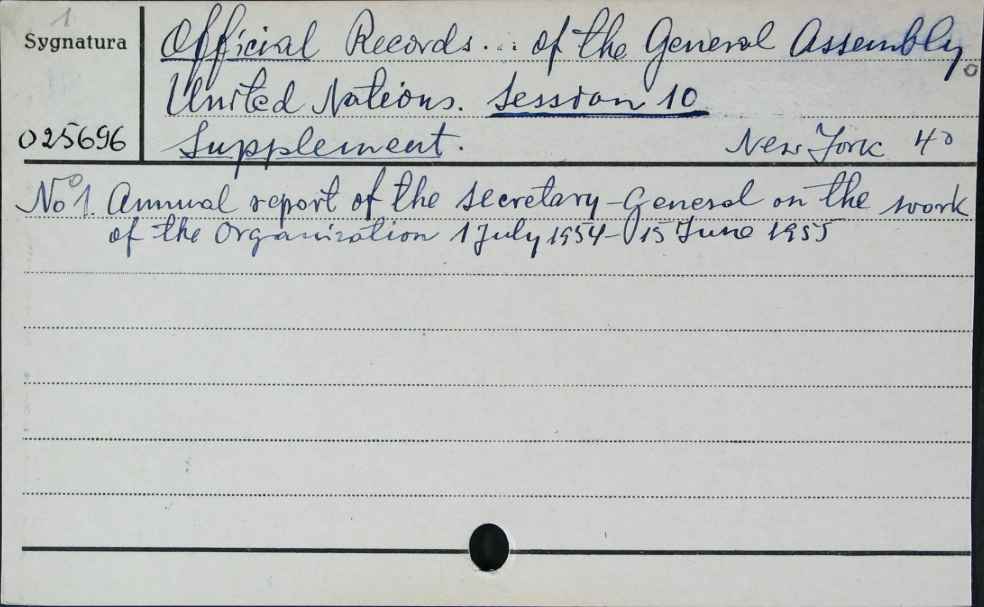 1
Sygnatura
Official Records... of the General Assembly.
United Nations. Session 10
025696
Supplement. New York 4°
No 1. Annual report of the Secretary-General on the work
of the Organization 1 July 1954-15 June 1955